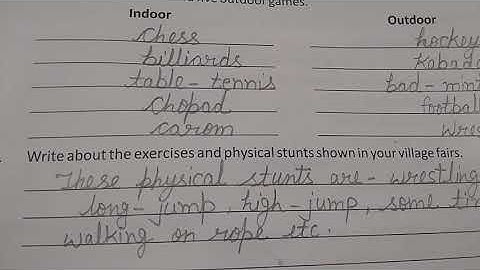 outdoor games.
Indoor Outdoor
chess hockey
billiards
table-tennis bad-mint
Chopad football
carom
Write about the exercises and physical stunts shown in your village fairs.
These physical stunts are - wrestling
long-jump, high-jump, some
walking on rope etc.